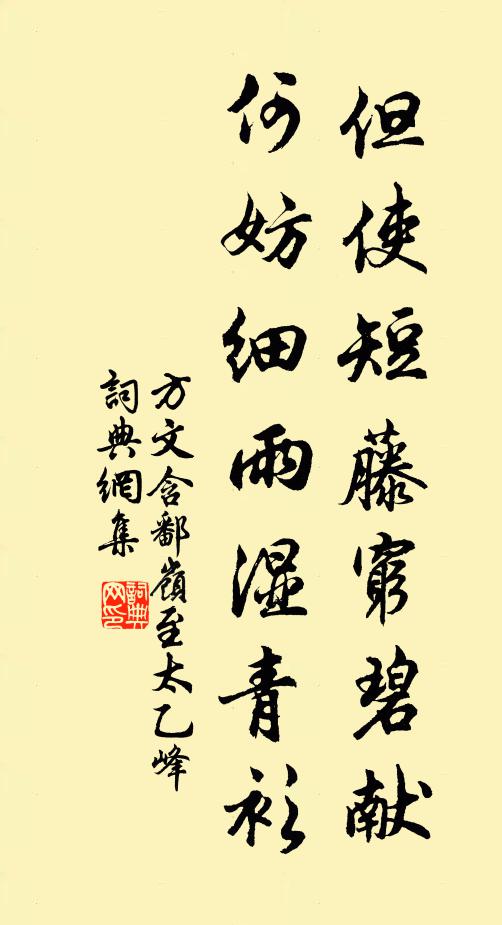 但使短藤窮碧献
何妨細雨湿青衫
方文含鄱嶺至太乙峰
詞典網集
詞典网印